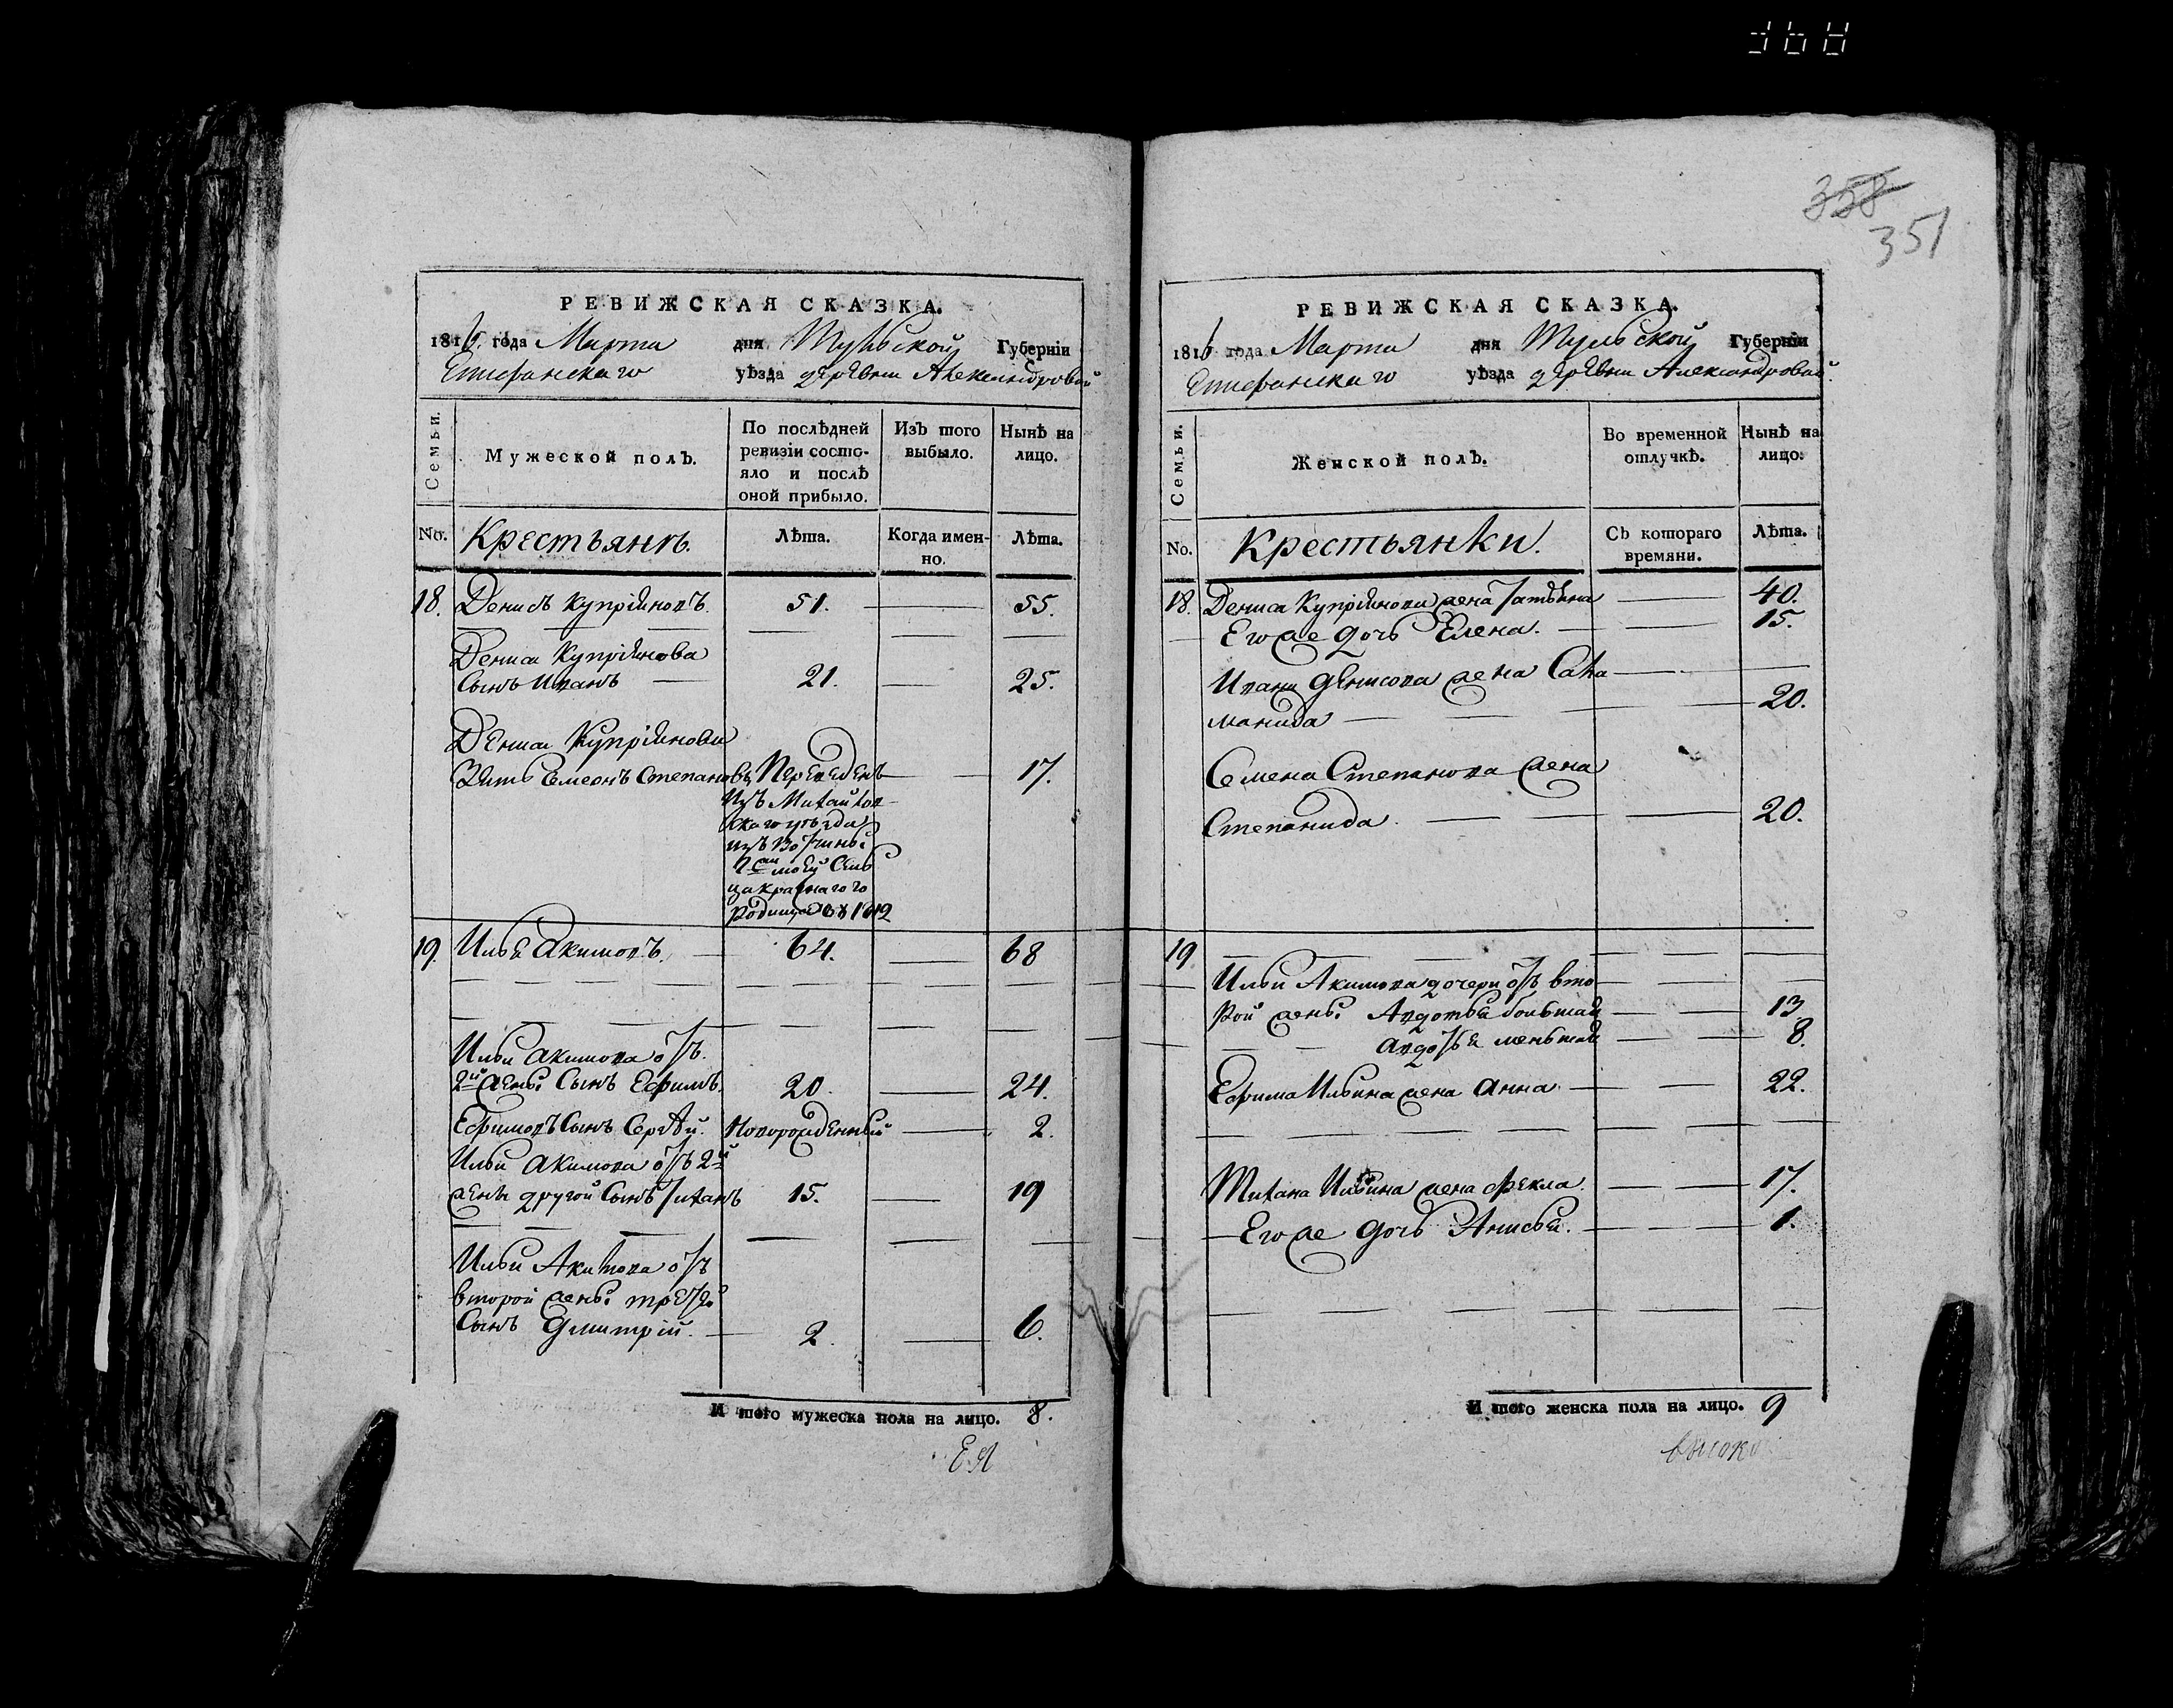 358
351
РЕВИЖСКАЯ СКАЗКА.
1816 года Марта дня Тульской Губерніи
Епифанскаго уѣзда деревни Александровой
Семьи.
Мужеской полъ.
По послѣдней ревизіи состояло и послѣ оной прибыло.
Изъ того выбыло.
Нынѣ на лицо.
No.
Крестьянъ.
Лѣта.
Когда именно.
Лѣта.
18. Денисъ Купріяновъ. 51. 55.
Дениса Купріянова
Сынъ Иванъ 21. 25.
Дениса Купріянова
Зять Семеонъ Степановъ Переведенъ 17.
изъ Михайлов-
скаго уѣзда
изъ вотчины
моей Сель
ца Краснаго го
родища въ 1812
19. Илья Акимовъ. 64. 68
Ильи Акимова отъ
2й жены Сынъ Ефимъ. 20. 24.
Ефимовъ Сынъ Сергѣй. Новорожденный 2.
Ильи Акимова отъ 2й
жены другой Сынъ Тиханъ 15. 19
Ильи Акимова отъ
второй жены третей
Сынъ Дмитрій. 2. 6.
И того мужеска пола на лицо. 8.
РЕВИЖСКАЯ СКАЗКА.
1816 года Марта дня Тульской Губерніи
Епифанскаго уѣзда деревни Александровой.
Семьи.
Женской полъ.
Во временной отлучкѣ.
Нынѣ на лицо.
No.
Крестьянки.
Съ котораго времяни.
Лѣта.
18. Дениса Купріянова жена Татьяна 40.
Его же дочь Елена. 15.
Ивана Денисова жена Сала
манида 20.
Семена Степанова жена
Степанида. 20.
19
Ильи Акимова дочери отъ вто
рой жены Авдотья большая 13
Авдотья меньшая 8.
Ефима Ильина жена Анна 22.
Тихана Ильина жена Фекла. 17.
Его же дочь Анисья. 1.
И того женска пола на лицо. 9